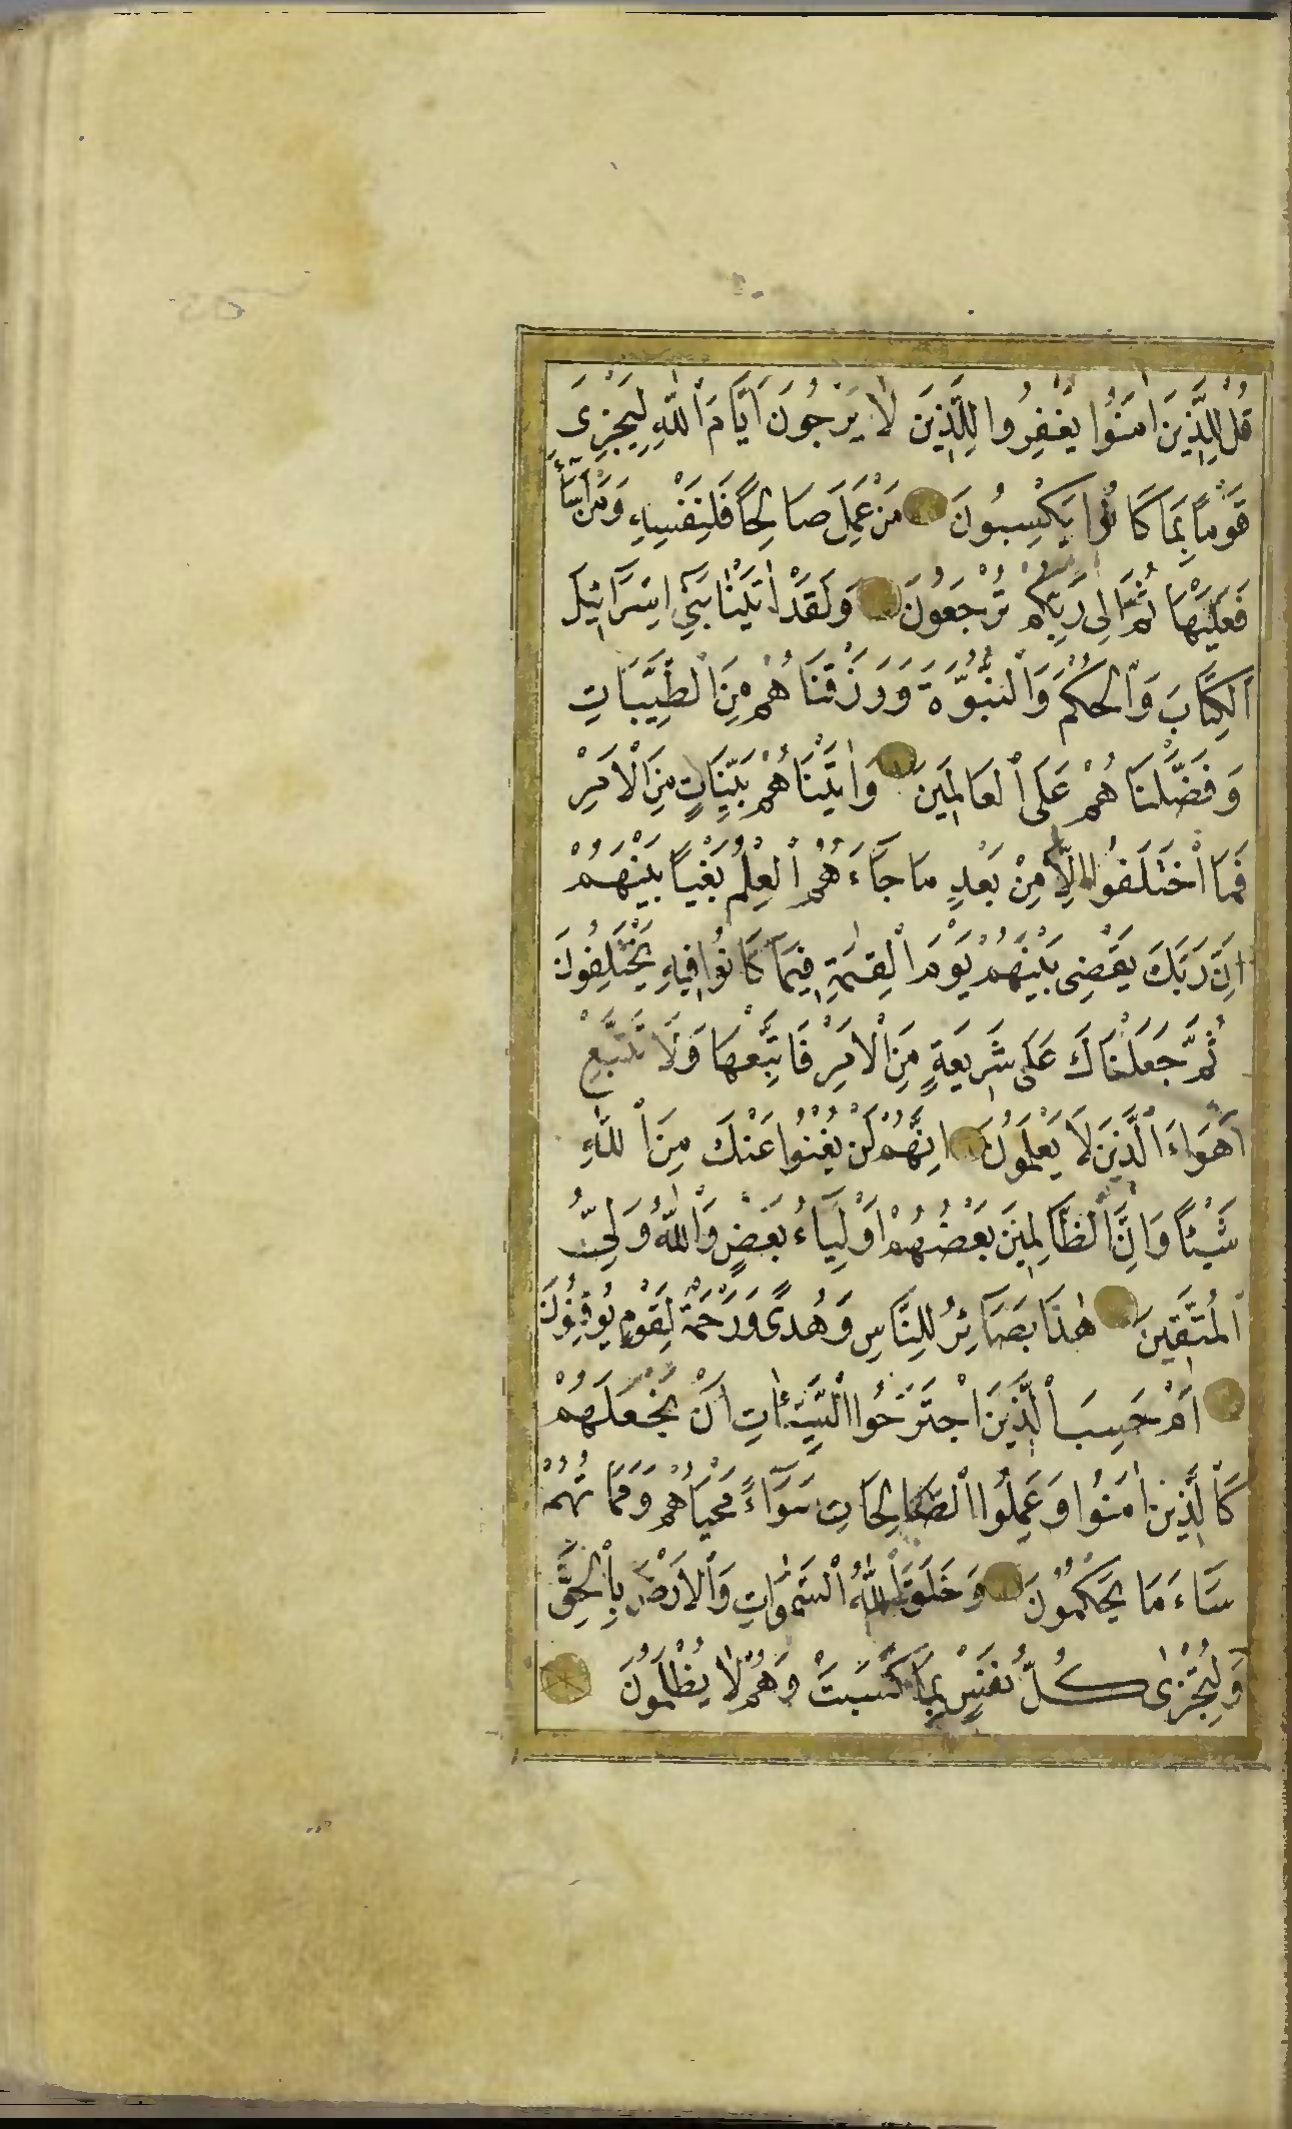 قُلْ لِلَّذِينَ اٰمَنُوا يَغْفِرُوا لِلَّذِينَ لَا يَرْجُونَ اَيَّامَ اللّٰهِ لِيَجْزِىَ
قَوْماً بِمَا كَانُوا يَكْسِبُونَ مَنْ عَمِلَ صَالِحًا فَلِنَفْسِهِ وَمَنْ اَسَآءَ
فَعَلَيْهَا ثُمَّ اِلٰى رَبِّكُمْ تُرْجَعُونَ وَلَقَدْ اٰتَيْنَا بَنِىٓ اِسْرَٓائِيلَ
الْكِتَابَ وَالْحُكْمَ وَالنُّبُوَّةَ وَرَزَقْنَاهُمْ مِنَ الطَّيِّبَاتِ
وَفَضَّلْنَاهُمْ عَلَى الْعَالَمِينَ وَاٰتَيْنَاهُمْ بَيِّنَاتٍ مِنَ الْاَمْرِ
فَمَا اخْتَلَفُوا اِلَّا مِنْ بَعْدِ مَا جَآءَهُمُ الْعِلْمُ بَغْيًا بَيْنَهُمْ
اِنَّ رَبَّكَ يَقْضِى بَيْنَهُمْ يَوْمَ الْقِيٰمَةِ فِيمَا كَانُوا فِيهِ يَخْتَلِفُونَ
ثُمَّ جَعَلْنَاكَ عَلٰى شَرِيعَةٍ مِنَ الْاَمْرِ فَاتَّبِعْهَا وَلَا تَتَّبِعْ
اَهْوَآءَ الَّذِينَ لَا يَعْلَمُونَ اِنَّهُمْ لَنْ يُغْنُوا عَنْكَ مِنَ اللّٰهِ
شَيْئًا وَاِنَّ الظَّالِمِينَ بَعْضُهُمْ اَوْلِيَآءُ بَعْضٍ وَاللّٰهُ وَلِىُّ
الْمُتَّقِينَ هٰذَا بَصَآئِرُ لِلنَّاسِ وَهُدًى وَرَحْمَةٌ لِقَوْمٍ يُوقِنُونَ
اَمْ حَسِبَ الَّذِينَ اجْتَرَحُوا السَّيِّئَاتِ اَنْ نَجْعَلَهُمْ
كَالَّذِينَ اٰمَنُوا وَعَمِلُوا الصَّالِحَاتِ سَوَآءً مَحْيَاهُمْ وَمَمَاتُهُمْ
سَآءَ مَا يَحْكُمُونَ وَخَلَقَ اللّٰهُ السَّمٰوَاتِ وَالْاَرْضَ بِالْحَقِّ
وَلِتُجْزٰى كُلُّ نَفْسٍ بِمَا كَسَبَتْ وَهُمْ لَا يُظْلَمُونَ